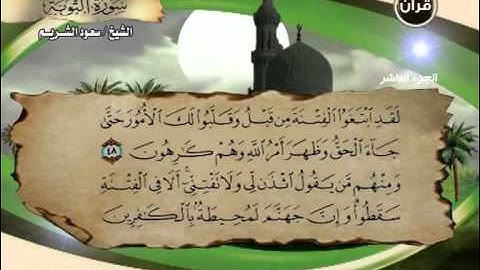 سورة التوبة
قرآن
الشيخ / سعود الشريم
الجزء العاشر
لَقَدِ ٱبْتَغَوُا۟ ٱلْفِتْنَةَ مِن قَبْلُ وَقَلَّبُوا۟ لَكَ ٱلْأُمُورَ حَتَّىٰ
جَآءَ ٱلْحَقُّ وَظَهَرَ أَمْرُ ٱللَّهِ وَهُمْ كَـٰرِهُونَ ٤٨
وَمِنْهُم مَّن يَقُولُ ٱئْذَن لِّى وَلَا تَفْتِنِّىٓ ۚ أَلَا فِى ٱلْفِتْنَةِ
سَقَطُوا۟ ۗ وَإِنَّ جَهَنَّمَ لَمُحِيطَةٌۢ بِٱلْكَـٰفِرِينَ